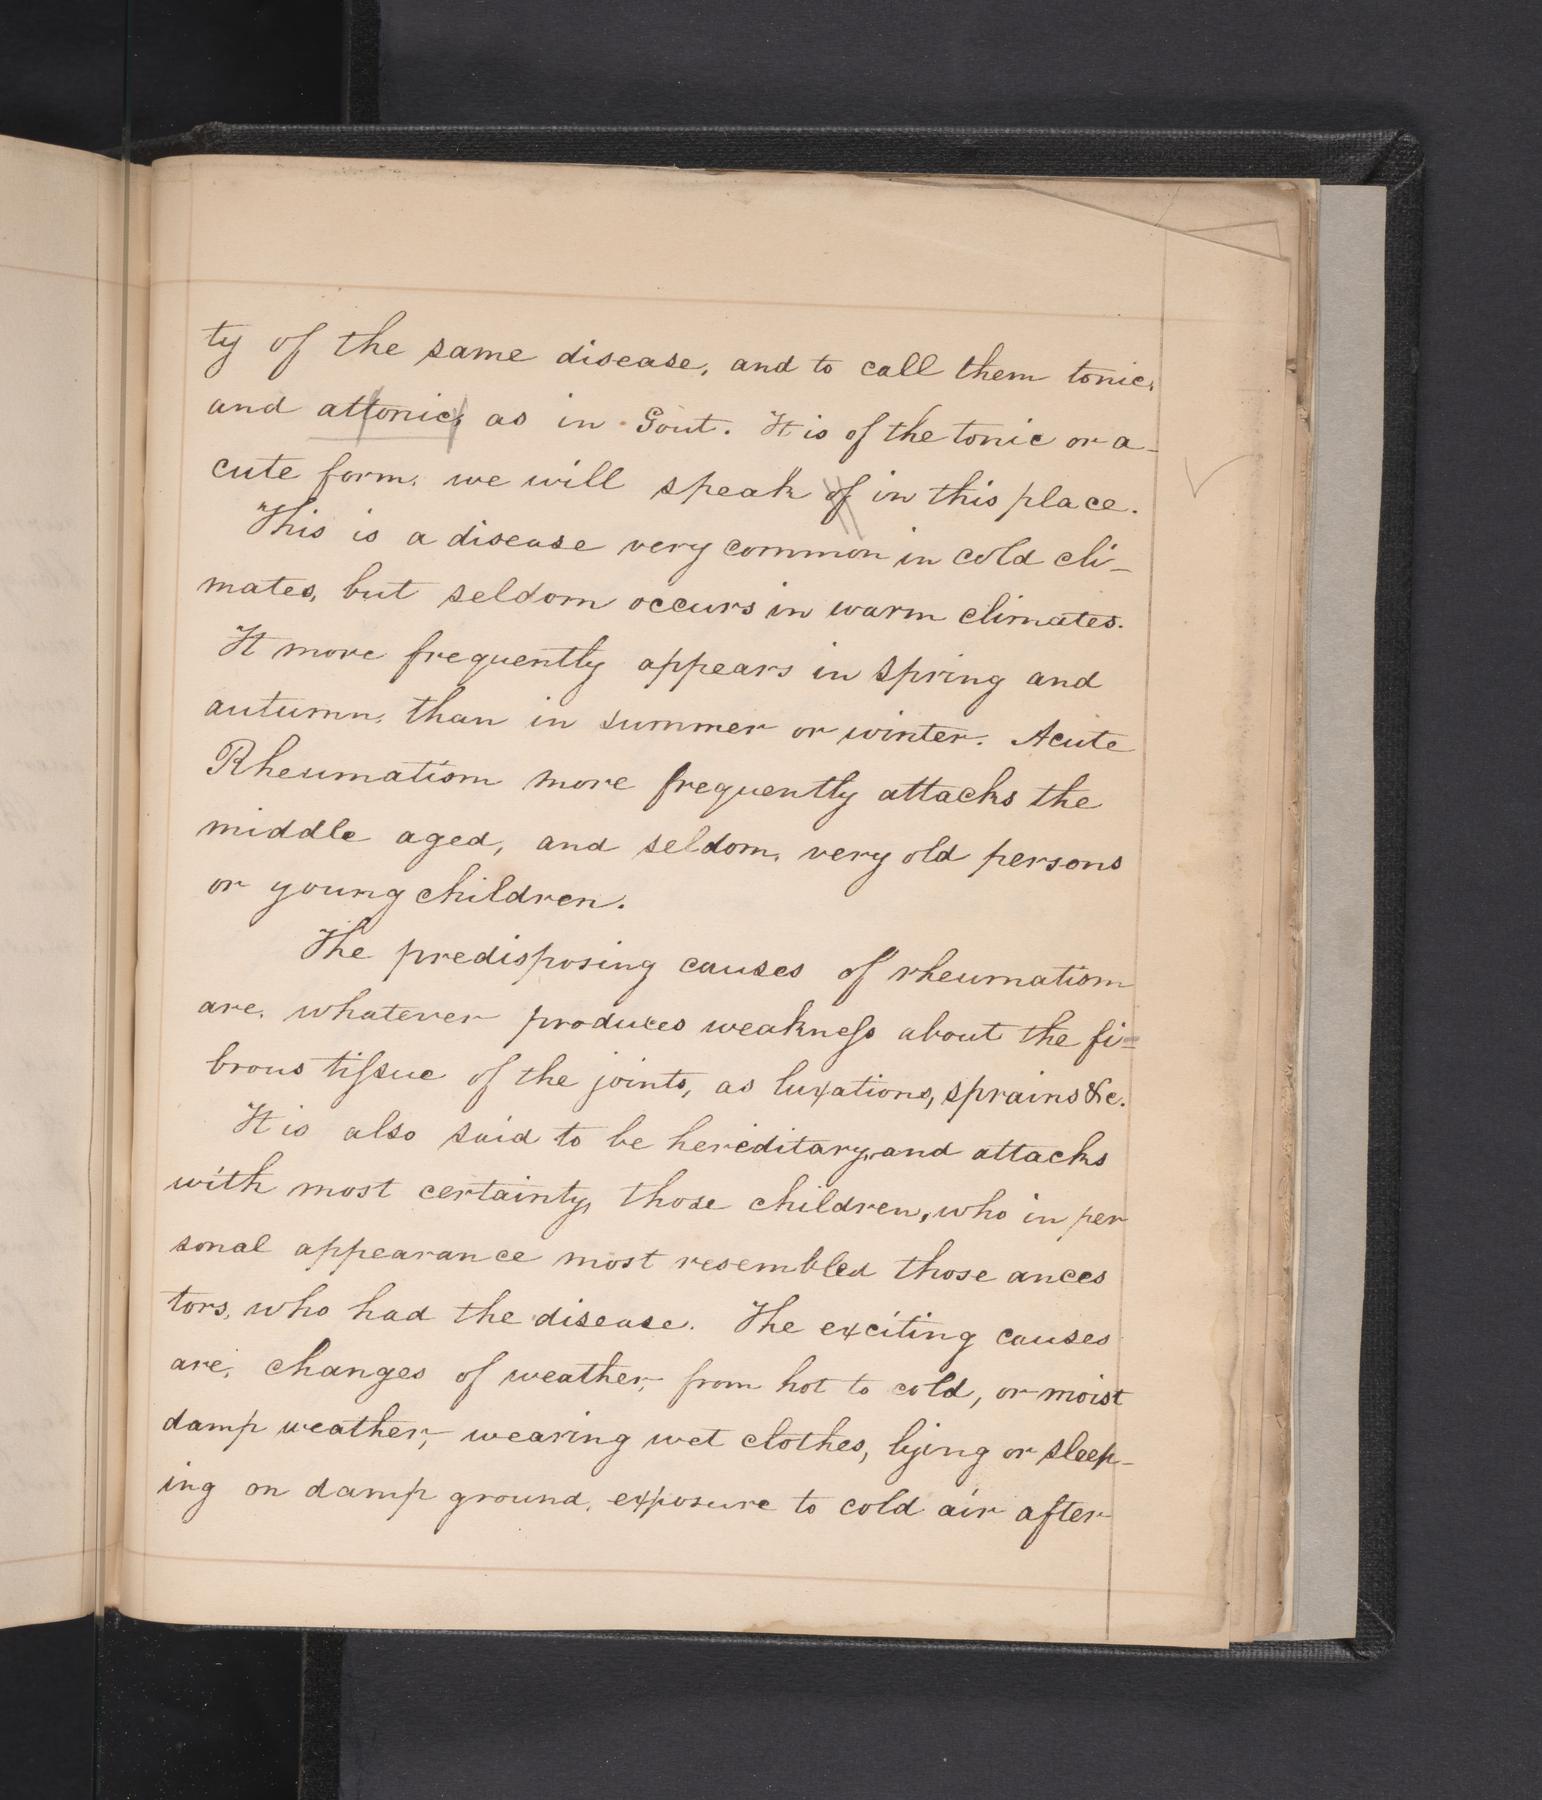 ty of the same disease, and to call them tonic,
and attonic, as in Gout. It is of the tonic or a-
cute form, we will speak of in this place.
This is a disease very common in cold cli-
mates, but seldom occurs in warm climates.
It more frequently appears in spring and
autumn, than in summer or winter. Acute
Rheumatism more frequently attacks the
middle aged, and seldom, very old persons
or young children.
The predisposing causes of rheumatism
are, whatever produces weakness about the fi-
brous tissue of the joints, as luxations, sprains &c.
It is also said to be hereditary, and attacks
with most certainty, those children, who in per
sonal appearance most resembled those ances
tors, who had the disease. The exciting causes
are, changes of weather, from hot to cold, or moist
damp weather, wearing wet clothes, lying or sleep-
ing on damp ground, exposure to cold air after